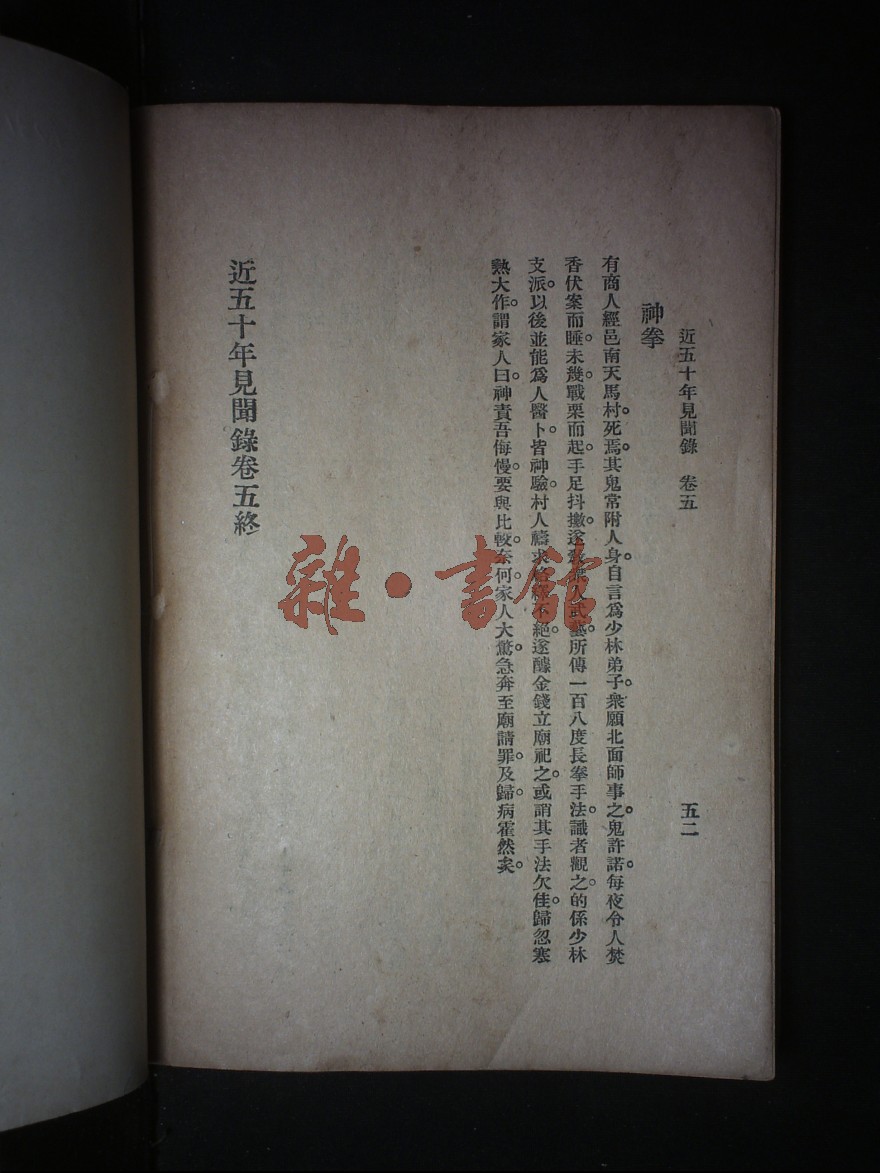 近五十年見聞錄 卷五
五二
神拳
有商人經邑南天馬村。死焉。其鬼常附人身。自言爲少林弟子。衆願北面師事之。鬼許諾。每夜令人焚
香伏案而睡。未幾。戰栗而起。手足抖擻。遂人武藝。所傳一百八度長拳手法。識者觀之。的係少林
支派。以後並能爲人醫卜。皆神驗。村人禱求不絕。遂醵金錢立廟祀之。或誚其手法欠佳。歸忽寒
熱大作。謂家人曰。神責吾侮慢。要與比較。奈何。家人大驚。急奔至廟請罪。及歸。病霍然矣。
近五十年見聞錄卷五終
雜·書館